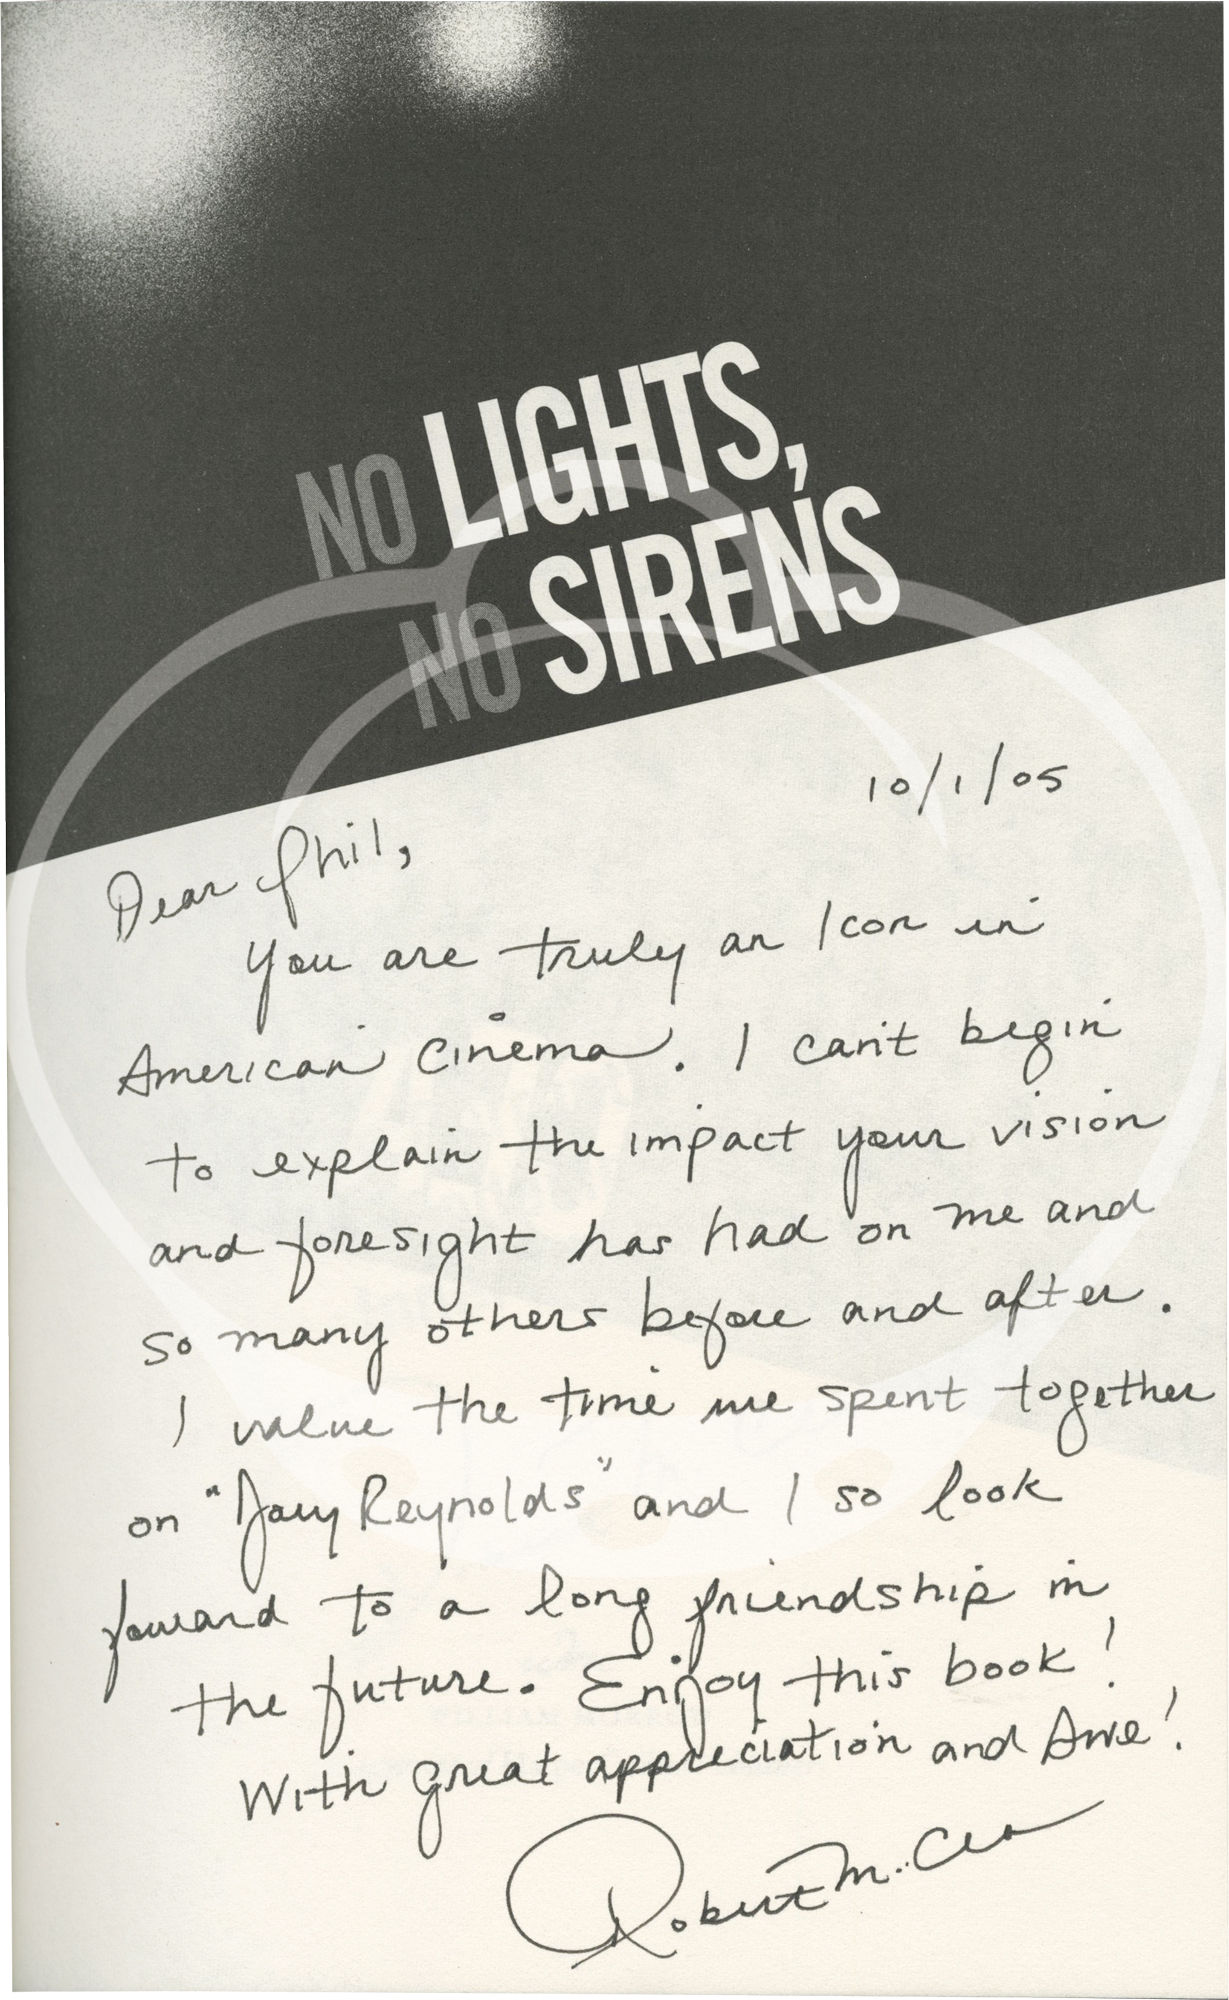 NO LIGHTS,
NO SIRENS
10/1/05
Dear Phil,
You are truly an Icon in
American Cinema. I can't begin
to explain the impact your vision
and foresight has had on me and
so many others before and after.
I value the time we spent together
on "Joey Reynolds" and I so look
foward to a long friendship in
the future. Enjoy this book!
With great appreciation and Awe!
Robert M. Cea